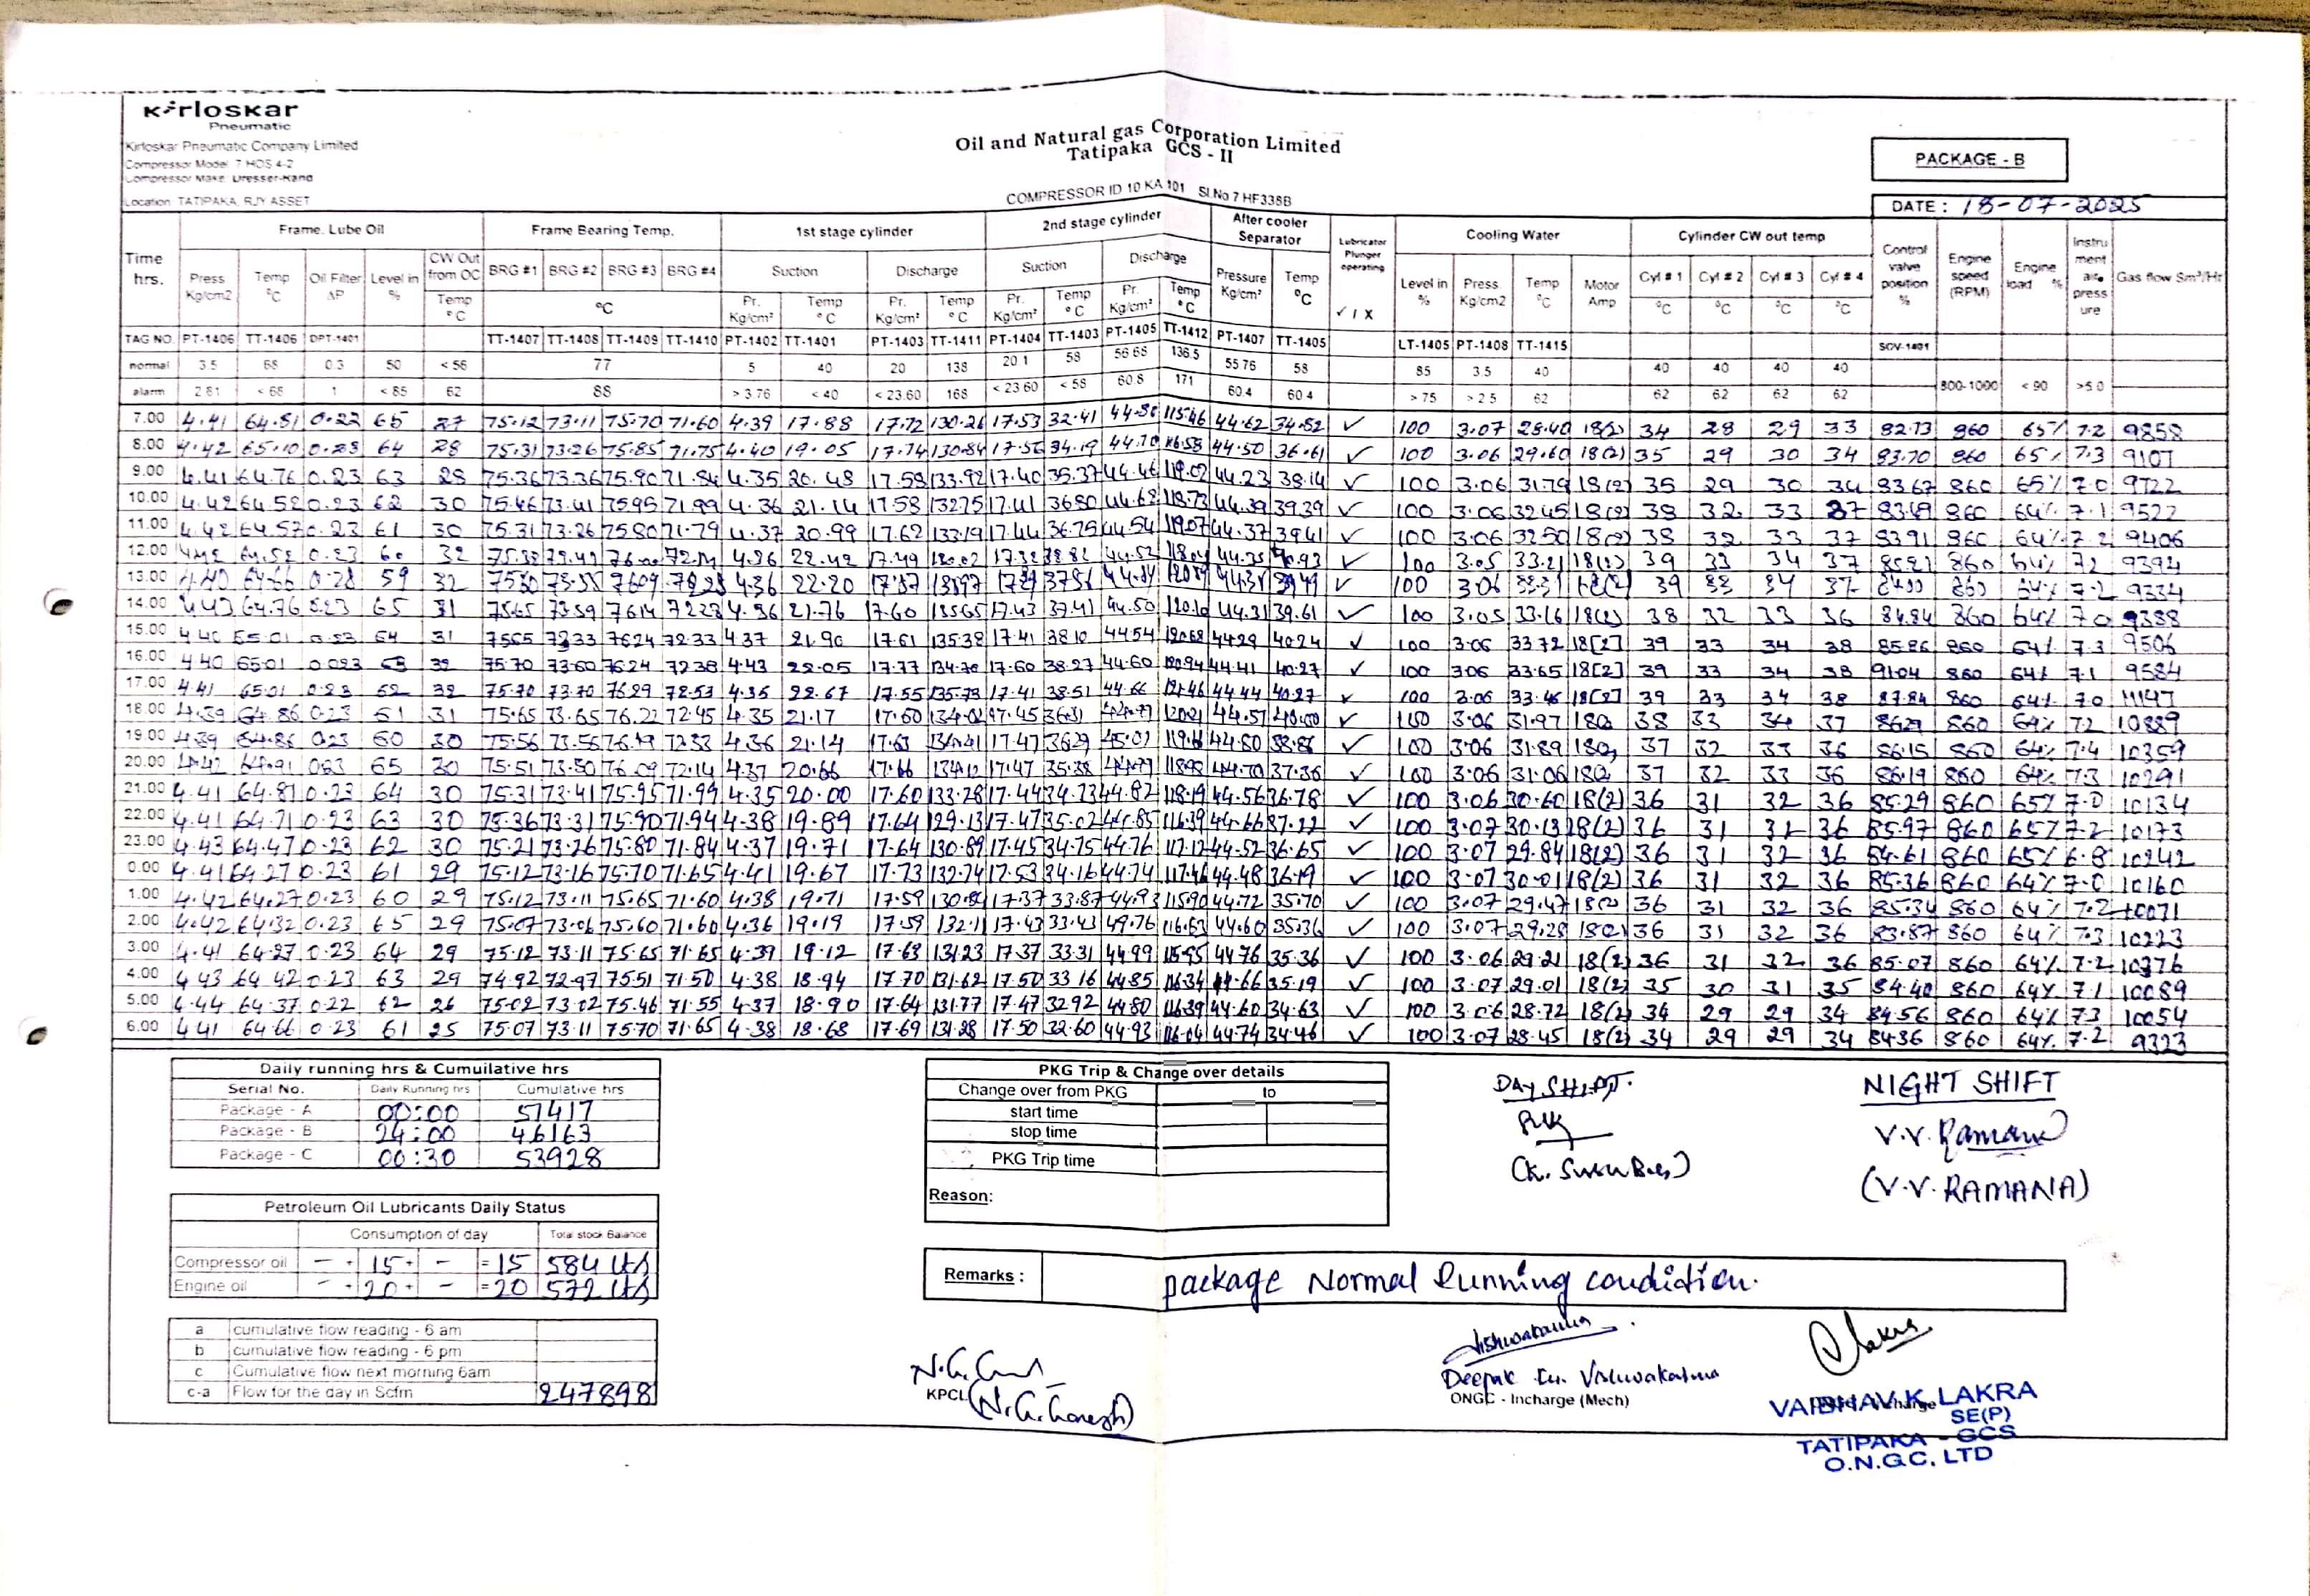 Kirloskar
Pneumatic
Kirloskar Pneumatic Company Limited
Compressor Model 7 HOS 4-2
Compressor Make: Dresser-Rand
Location TATIPAKA, RJY ASSET
Oil and Natural gas Corporation Limited
Tatipaka GCS - II
COMPRESSOR ID 10 KA 101 Sl.No 7 HF338B
PACKAGE - B
DATE : 18-07-2025
Time hrs. Frame. Lube Oil Frame Bearing Temp. 1st stage cylinder 2nd stage cylinder After cooler Separator Lubricator Plunger operating Cooling Water Cylinder CW out temp Control valve position % Engine speed (RPM) Engine load % Instru ment air press ure Gas flow Sm³/Hr
Press Kg/cm2 Temp °C Oil Filter ΔP Level in % CW Out from OC Temp °C BRG #1 BRG #2 BRG #3 BRG #4 °C Suction Discharge Suction Discharge Pressure Kg/cm² Temp °C ✓ / X Level in % Press Kg/cm2 Temp °C Motor Amp Cyl # 1 Cyl # 2 Cyl # 3 Cyl # 4
Pr. Kg/cm² Temp °C Pr. Kg/cm² Temp °C Pr. Kg/cm² Temp °C Pr. Kg/cm² Temp °C °C °C °C °C
TAG NO. PT-1406 TT-1406 DPT-1401 TT-1407 TT-1408 TT-1409 TT-1410 PT-1402 TT-1401 PT-1403 TT-1411 PT-1404 TT-1403 PT-1405 TT-1412 PT-1407 TT-1405 LT-1405 PT-1408 TT-1415 SCV-1401
normal 3.5 65 0.3 50 < 56 77 5 40 20 138 20.1 58 56.68 136.5 55.76 58 85 3.5 40 40 40 40 40
alarm 2.81 < 68 1 < 85 62 88 > 3.76 < 40 < 23.60 168 < 23.60 < 58 60.8 171 60.4 60.4 > 75 > 2.5 62 62 62 62 62 800-1000 < 90 >5.0
7.00 4.41 64.81 0.22 65 27 75.12 73.11 75.70 71.60 4.39 17.88 17.72 130.26 17.53 32.41 44.62 34.52 ✓ 100 3.07 28.40 18(2) 34 28 29 33 82.73 860 65% 7.2 9858
8.00 4.42 65.10 0.23 64 28 75.31 73.26 75.85 71.75 4.40 19.05 17.74 130.84 17.56 34.19 44.70 116.58 44.50 36.61 ✓ 100 3.06 29.60 18(2) 35 29 30 34 83.70 860 65% 7.3 9107
9.00 4.41 64.76 0.23 63 28 75.36 73.36 75.90 71.84 4.35 20.48 17.58 133.92 17.40 35.37 44.46 119.02 44.23 38.14 ✓ 100 3.06 31.79 18(2) 35 29 30 34 83.67 860 65% 7.0 9722
10.00 4.42 64.52 0.23 62 30 75.46 73.41 75.95 71.99 4.36 21.14 17.58 132.75 17.41 36.80 44.62 118.73 44.39 39.39 ✓ 100 3.06 32.45 18(2) 38 32 33 37 83.69 860 64% 7.1 9522
11.00 4.42 64.57 0.23 61 30 75.31 73.26 75.80 71.79 4.37 20.99 17.62 133.19 17.44 36.75 44.54 119.07 44.37 39.41 ✓ 100 3.06 32.50 18(2) 38 32 33 37 83.91 860 64% 7.2 9406
12.00 0.23 60 32 4.36 22.42 17.49 44.52 44.35 40.93 ✓ 100 3.05 33.21 18(2) 39 33 34 37 860 64% 7.2 9394
13.00 4.40 64.66 59 32 4.36 22.20 37.86 ✓ 100 3.06 39 33 34 37 860 64% 7.2 9334
14.00 4.43 64.76 0.23 65 31 75.65 73.59 76.14 72.28 4.36 21.76 17.60 135.65 17.43 37.41 44.50 44.31 39.61 ✓ 100 3.05 33.16 18(2) 38 32 33 36 84.84 860 64% 7.0 9388
15.00 4.40 65.01 0.23 64 31 75.65 76.24 72.33 4.37 21.90 17.61 135.38 17.41 38.10 44.54 120.68 44.29 40.24 ✓ 100 3.06 33.72 18[2] 39 33 34 38 85.86 860 64% 7.3 9506
16.00 4.40 65.01 0.023 63 32 75.70 73.60 76.24 72.38 4.43 22.05 17.77 134.70 17.60 38.27 44.60 120.94 44.41 40.27 ✓ 100 3.06 33.65 18[2] 39 33 34 38 91.04 860 64% 7.1 9584
17.00 4.41 65.01 0.23 62 32 75.70 73.70 76.29 72.53 4.35 22.67 17.55 135.73 17.41 38.51 44.66 121.46 44.44 40.27 ✓ 100 3.06 33.46 18[2] 39 33 34 38 87.84 860 64% 7.0 11147
18.00 4.39 64.86 0.23 61 31 75.65 73.65 76.22 72.45 4.35 21.17 17.60 134.02 17.45 36.31 44.57 ✓ 100 3.06 31.97 38 33 34 37 86.29 860 64% 7.2 10889
19.00 4.39 64.86 0.23 60 30 75.56 73.56 76.19 72.33 4.36 21.14 17.63 134.41 17.47 36.29 45.01 44.80 38.86 ✓ 100 3.06 31.89 37 32 33 36 86.15 860 64% 7.4 10359
20.00 4.42 64.91 65 30 75.51 73.50 76.09 72.14 4.37 20.66 17.66 134.12 17.47 35.38 44.70 37.36 ✓ 100 3.06 31.06 37 32 33 36 86.19 860 64% 7.3 10291
21.00 4.41 64.81 0.23 64 30 75.31 73.41 75.95 71.99 4.35 20.00 17.60 133.28 17.44 34.73 44.82 118.19 44.56 36.78 ✓ 100 3.06 30.60 18(2) 36 31 32 36 85.29 860 65% 7.0 10134
22.00 4.41 64.71 0.23 63 30 75.36 73.31 75.90 71.94 4.38 19.89 17.64 129.13 17.47 35.02 44.85 116.39 44.66 37.22 ✓ 100 3.07 30.13 18(2) 36 31 31 36 85.97 860 65% 7.2 10173
23.00 4.43 64.47 0.23 62 30 75.21 73.26 75.80 71.84 4.37 19.71 17.64 130.89 17.45 34.75 44.76 117.12 44.52 36.65 ✓ 100 3.07 29.84 18(2) 36 31 32 36 84.61 860 65% 6.8 10242
0.00 4.41 64.27 0.23 61 29 75.12 73.16 75.70 71.65 4.41 19.67 17.73 132.74 17.53 34.16 44.74 117.46 44.48 36.19 ✓ 100 3.07 30.01 18(2) 36 31 32 36 85.36 860 64% 7.0 10160
1.00 4.42 64.27 0.23 60 29 75.12 73.11 75.65 71.60 4.38 19.71 17.59 130.84 17.37 33.87 44.93 115.90 44.72 35.70 ✓ 100 3.07 29.47 18(2) 36 31 32 36 85.34 860 64% 7.2 10071
2.00 4.42 64.32 0.23 65 29 75.07 73.06 75.60 71.60 4.36 19.19 17.59 132.11 17.43 33.43 49.76 116.63 44.60 35.36 ✓ 100 3.07 29.29 18(2) 36 31 32 36 83.87 860 64% 7.3 10223
3.00 4.41 64.27 0.23 64 29 75.12 73.11 75.65 71.65 4.39 19.12 17.63 131.23 17.37 33.31 44.99 115.95 44.76 35.36 ✓ 100 3.06 29.21 18(2) 36 31 32 36 85.07 860 64% 7.2 10376
4.00 4.43 64.42 0.23 63 29 74.92 72.97 75.51 71.50 4.38 18.94 17.70 131.62 17.50 33.16 44.85 116.34 44.66 35.19 ✓ 100 3.07 29.01 18(2) 35 30 31 35 84.40 860 64% 7.1 10089
5.00 4.44 64.37 0.22 62 26 75.02 73.02 75.46 71.55 4.37 18.90 17.64 131.77 17.47 32.92 44.80 116.39 44.60 34.63 ✓ 100 3.06 28.72 18(2) 34 29 29 34 84.56 860 64% 7.3 10054
6.00 4.41 64.66 0.23 61 25 75.07 73.11 75.70 71.65 4.38 18.68 17.69 131.28 17.50 32.60 44.93 116.04 44.74 34.46 ✓ 100 3.07 28.45 18(2) 34 29 29 34 84.36 860 64% 7.2 9323
Daily running hrs & Cumuilative hrs
Serial No. Daily Running hrs Cumulative hrs
Package - A 00:00 57417
Package - B 24:00 46163
Package - C 00:30 53928
Petroleum Oil Lubricants Daily Status
Consumption of day Total stock Balance
Compressor oil - + 15 + - = 15 584 Lts
Engine oil - + 20 + - = 20 572 Lts
a cumulative flow reading - 6 am
b cumulative flow reading - 6 pm
c Cumulative flow next morning 6am
c-a Flow for the day in Scfm 247898
PKG Trip & Change over details
Change over from PKG to
start time
stop time
PKG Trip time
Reason:
DAY SHIFT.
NIGHT SHIFT
V.V. Ramana
(V.V. RAMANA)
Remarks : package Normal Running condition.
KPCL (N.G. Ganesh)
Deepak Ku. Vishwakarma
ONGC - Incharge (Mech)
VAIBHAV.K.LAKRA
SE(P)
TATIPAKA - GCS
O.N.G.C. LTD